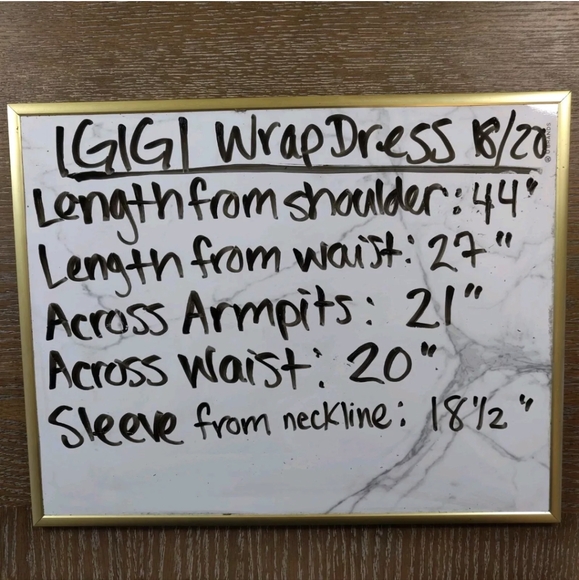 IGIGI Wrap Dress 18/20
Length from shoulder: 44"
Length from waist: 27"
Across Armpits: 21"
Across Waist: 20"
Sleeve from neckline: 18 1/2"
U BRANDS